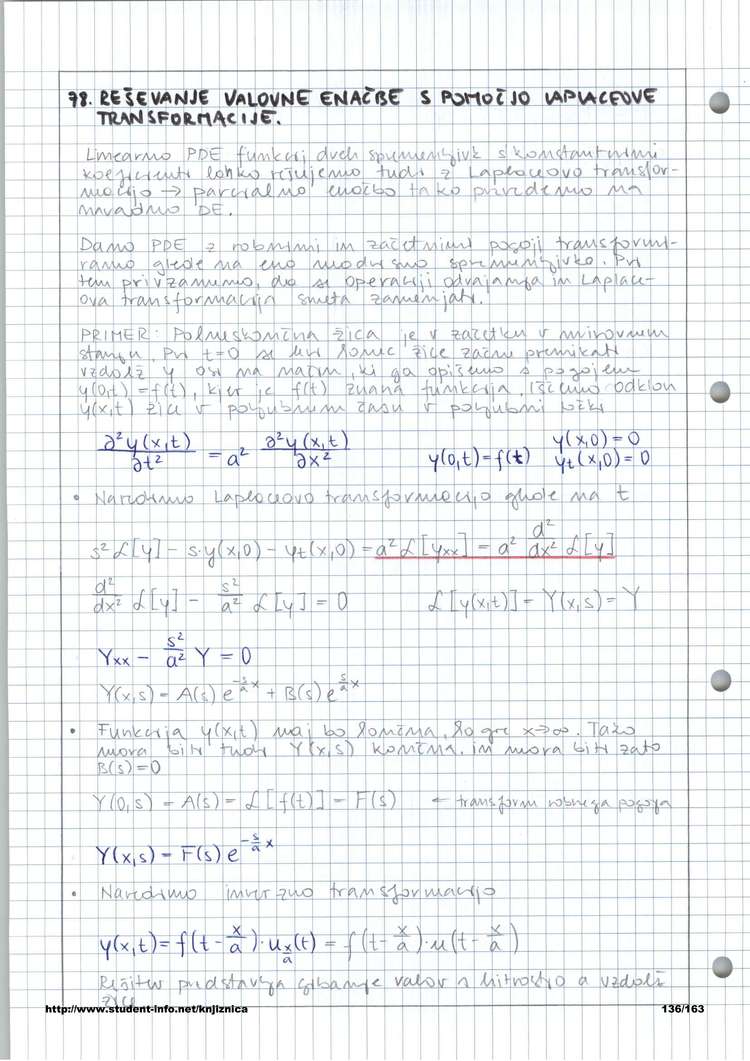 78. REŠEVANJE VALOVNE ENAČBE S POMOČJO LAPLACEOVE
TRANSFORMACIJE.
Linearno PDE funkcij dveh spremenljivk s konstantnimi
koeficienti lahko rešujemo tudi z Laplaceovo transfor-
macijo → parcialno enačbo tako prevedemo na
navadno DE.
Dano PDE z robnimi in začetnimi pogoji transformi-
ramo glede na eno neodvisno spremenljivko. Pri
tem privzamemo, da se operaciji odvajanja in Laplace-
ova transformacija smeta zamenjati.
PRIMER: Polneskončna žica je v začetku v mirovnem
stanju. Pri t=0 se levi konec žice začne premikati
vzdolž y osi na način, ki ga opišemo s pogojem
y(0,t)=f(t), kjer je f(t) znana funkcija. Iščemo odklon
y(x,t) žice v poljubnem času v poljubni točki
∂²y(x,t)/∂t² = a² ∂²y(x,t)/∂x² y(0,t)=f(t) y(x,0)=0 y_t(x,0)=0
• Naredimo Laplaceovo transformacijo glede na t
s² ℒ[y] - s·y(x,0) - y_t(x,0) = a² ℒ[y_xx] = a² d²/dx² ℒ[y]
d²/dx² ℒ[y] - s²/a² ℒ[y] = 0 ℒ[y(x,t)] = Y(x,s) = Y
Y_xx - s²/a² Y = 0
Y(x,s) = A(s) e^(-s/a x) + B(s) e^(s/a x)
• Funkcija y(x,t) naj bo končna, ko gre x→∞. Tako
mora biti tudi Y(x,s) končna in mora biti zato
B(s)=0
Y(0,s) = A(s) = ℒ[f(t)] = F(s) ← transform robnega pogoja
Y(x,s) = F(s) e^(-s/a x)
• Naredimo inverzno transformacijo
y(x,t) = f(t - x/a)·u_x/a(t) = f(t - x/a)·u(t - x/a)
Rešitev predstavlja gibanje valov s hitrostjo a vzdolž
žice
http://www.student-info.net/knjiznica 136/163